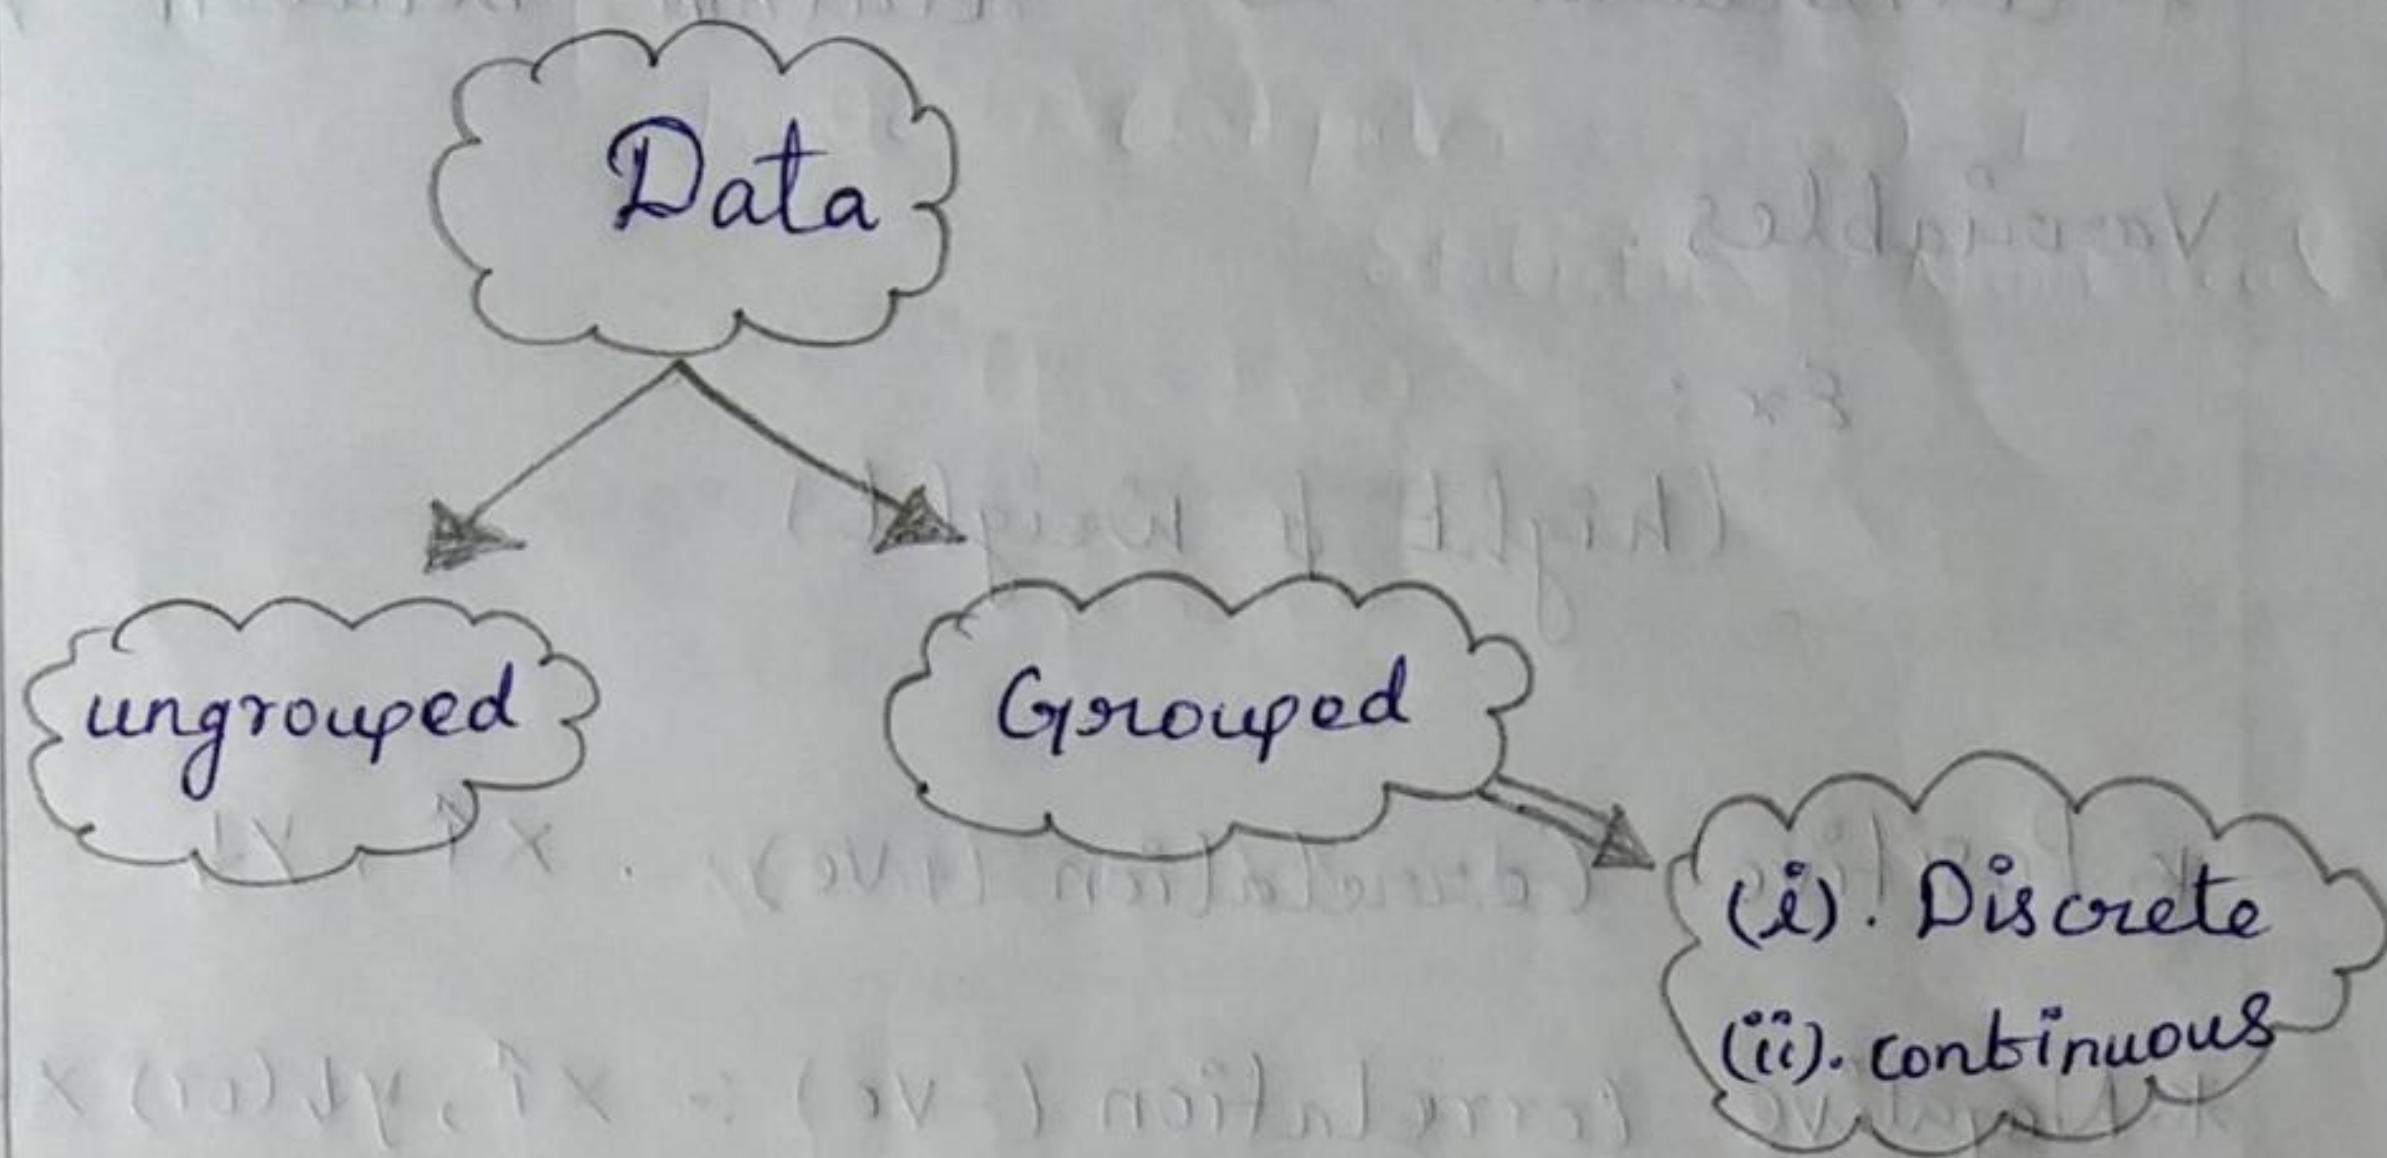 Data
ungrouped
Grouped
(i). Discrete
(ii). continuous